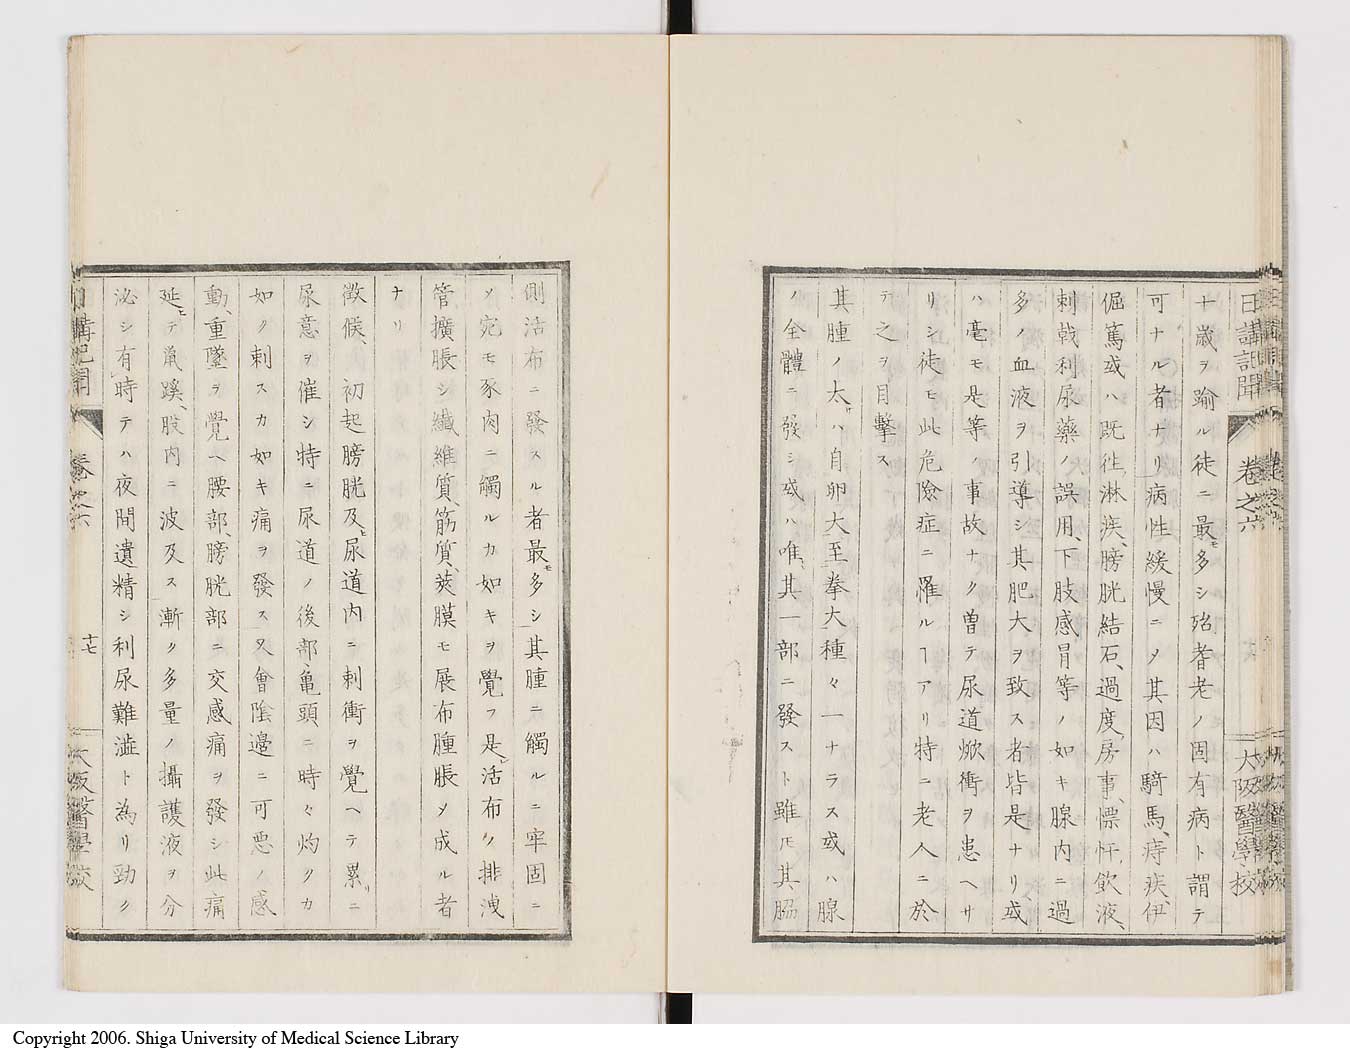 日講記聞 卷之六 大阪醫學挍
十歳ヲ踰ル徒ニ最モ多シ殆者老ノ固有病ト謂テ
可ナル者ナリ病性緩慢ニ〆其因ハ騎馬、痔疾、伊
倔篤或ハ既往淋疾、膀胱結石、過度房事、慓悍飲液、
刺戟利尿藥ノ誤用、下肢感冐等ノ如キ腺内ニ過
多ノ血液ヲ引導シ其肥大ヲ致ス者皆是ナリ或
ハ毫モ是等ノ事故ナク曽テ尿道焮衝ヲ患ヘサ
リシ徒モ此危險症ニ罹ルヿアリ特ニ老人ニ於
テ之ヲ目擊ス
其腫ノ太サハ自卵大至拳大種々一ナラス或ハ腺
ノ全體ニ發シ或ハ唯、其一部ニ發スト雖𪜈其脇
側活布ニ發スル者最モ多シ其腫ニ觸ルニ牢固ニ
〆宛モ豕肉ニ觸ルカ如キヲ覺フ是レ活布ノ排洩
管擴脹シ纎維質、筋質、莢膜モ展布腫脹〆成ル者
ナリ
徴候 初起膀胱及ヒ尿道内ニ刺衝ヲ覺ヘテ累リニ
尿意ヲ催シ特ニ尿道ノ後部亀頭ニ時々灼クカ
如ク刺スカ如キ痛ヲ發ス又會陰邊ニ可悪ノ感
動、重墜ヲ覺ヘ腰部、膀胱部ニ交感痛ヲ發シ此痛
延テ鼠蹊、股内ニ波及ス漸ク多量ノ攝護液ヲ分
泌シ有時テハ夜間遺精シ利尿難澁ト為リ勁ク
日講記聞 卷之六 十七 大阪醫學挍
Copyright 2006. Shiga University of Medical Science Library